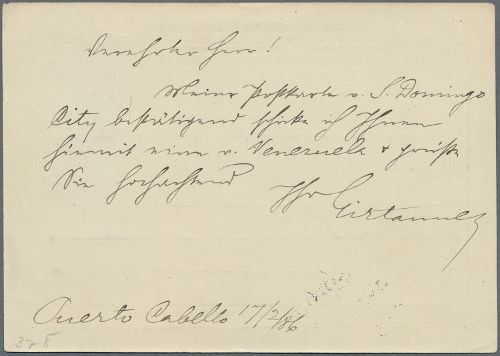 Verehrter Herr!
Meine Postkarte v. S. Domingo
City bestätigend schicke ich Ihnen
hiermit eine v. Venezuela + grüße
Sie hochachtend
Ihr Girtanner
Puerto Cabello 17/2/86